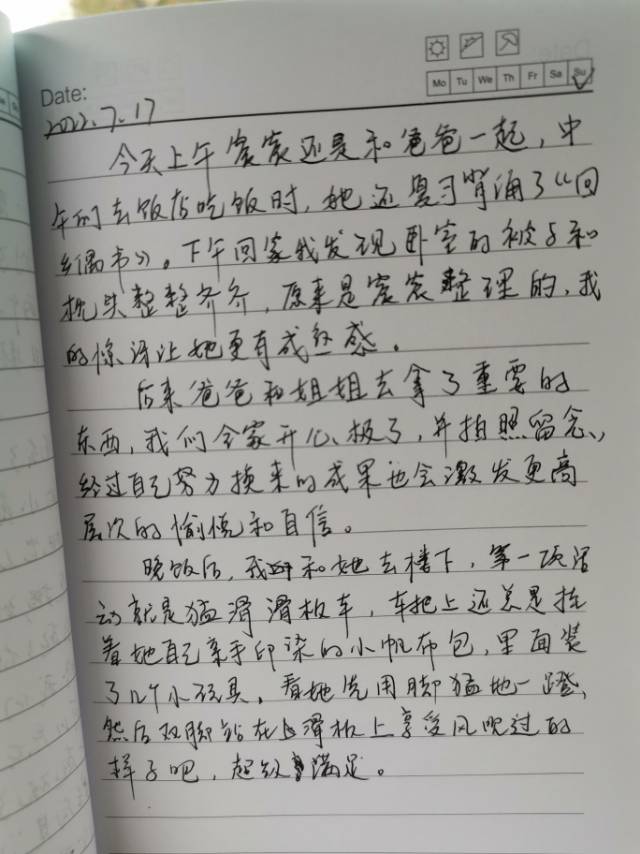 Date:
Mo Tu We Th Fr Sa Su
2022.7.17
今天上午宸宸还是和爸爸一起,中
午们去饭店吃饭时,她还复习背诵了《回
乡偶书》。下午回家我发现卧室的被子和
枕头整整齐齐,原来是宸宸整理的,我
的惊讶让她更有成就感。
后来爸爸和姐姐去拿了重要的
东西,我们全家开心极了,并拍照留念,
经过自己努力换来的成果也会激发更高
层次的愉悦和自信。
晚饭后,我和她去楼下,第一项活
动就是猛滑滑板车,车把上还总是挂
着她自己亲手印染的小帆布包,里面装
了几个小玩具,看她先用脚猛地一蹬,
然后双脚站在滑板上享受风吹过的
样子吧,超级满足。